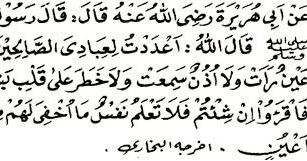 ن أبي هُرَيْرَةَ رَضِيَ اللهُ عَنْهُ قَالَ: قَالَ رَسُولُ
صلى الله عليه وسلم قَالَ اللهُ: أَعْدَدْتُ لِعِبَادِيَ الصَّالِحِيْنَ
عَيْنٌ رَأَتْ وَلَا أُذُنٌ سَمِعَتْ وَلَا خَطَرَ عَلَى قَلْبِ بَشَ
فَاقْرَءُوا إِنْ شِئْتُمْ فَلَا تَعْلَمُ نَفْسٌ مَا أُخْفِيَ لَهُمْ مِ
أَعْيُنٍ. اخرجه البخاري.